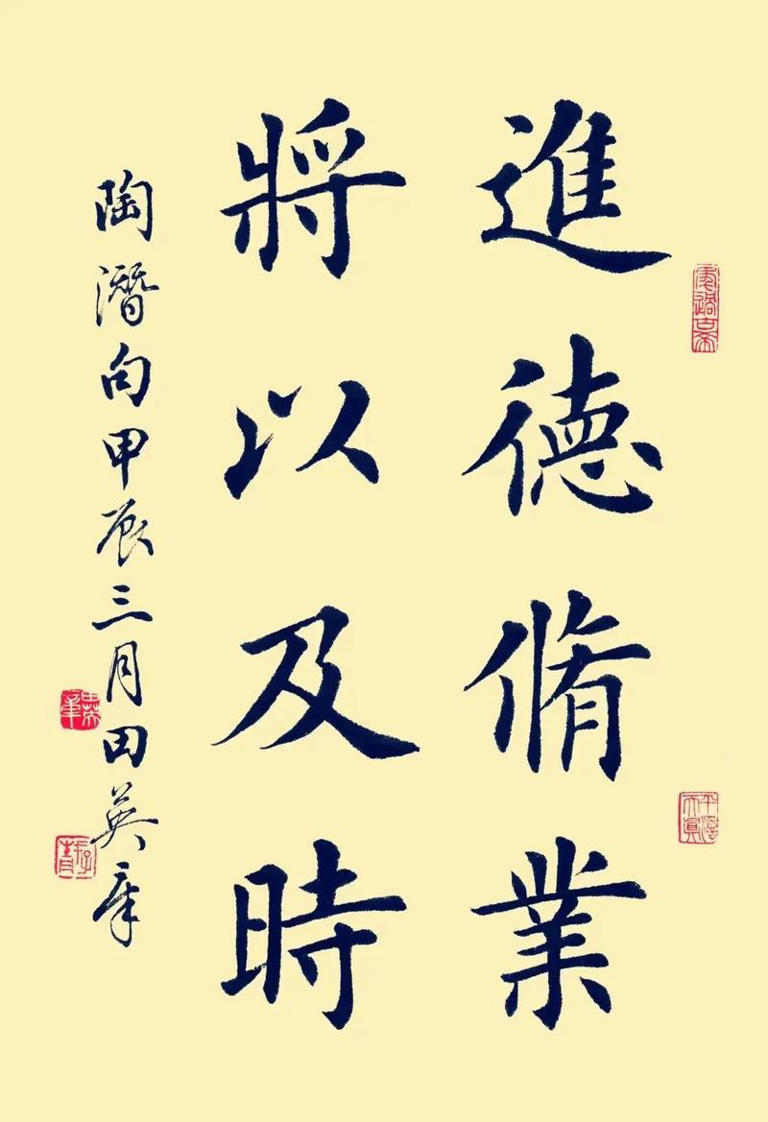 進德脩業
將以及時
陶潛句甲辰三月田英章